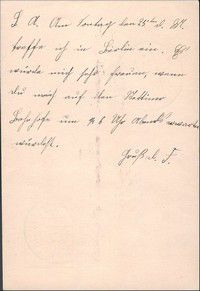 L. A. Am Sonntag den 25ten d. Mt.
treffe ich in Berlin ein. Es
würde mich sehr freuen, wenn
du mich auf dem Stettiner
Bahnhofe um 6 Uhr Abends erwarten
würdest.
Gruß d. F.